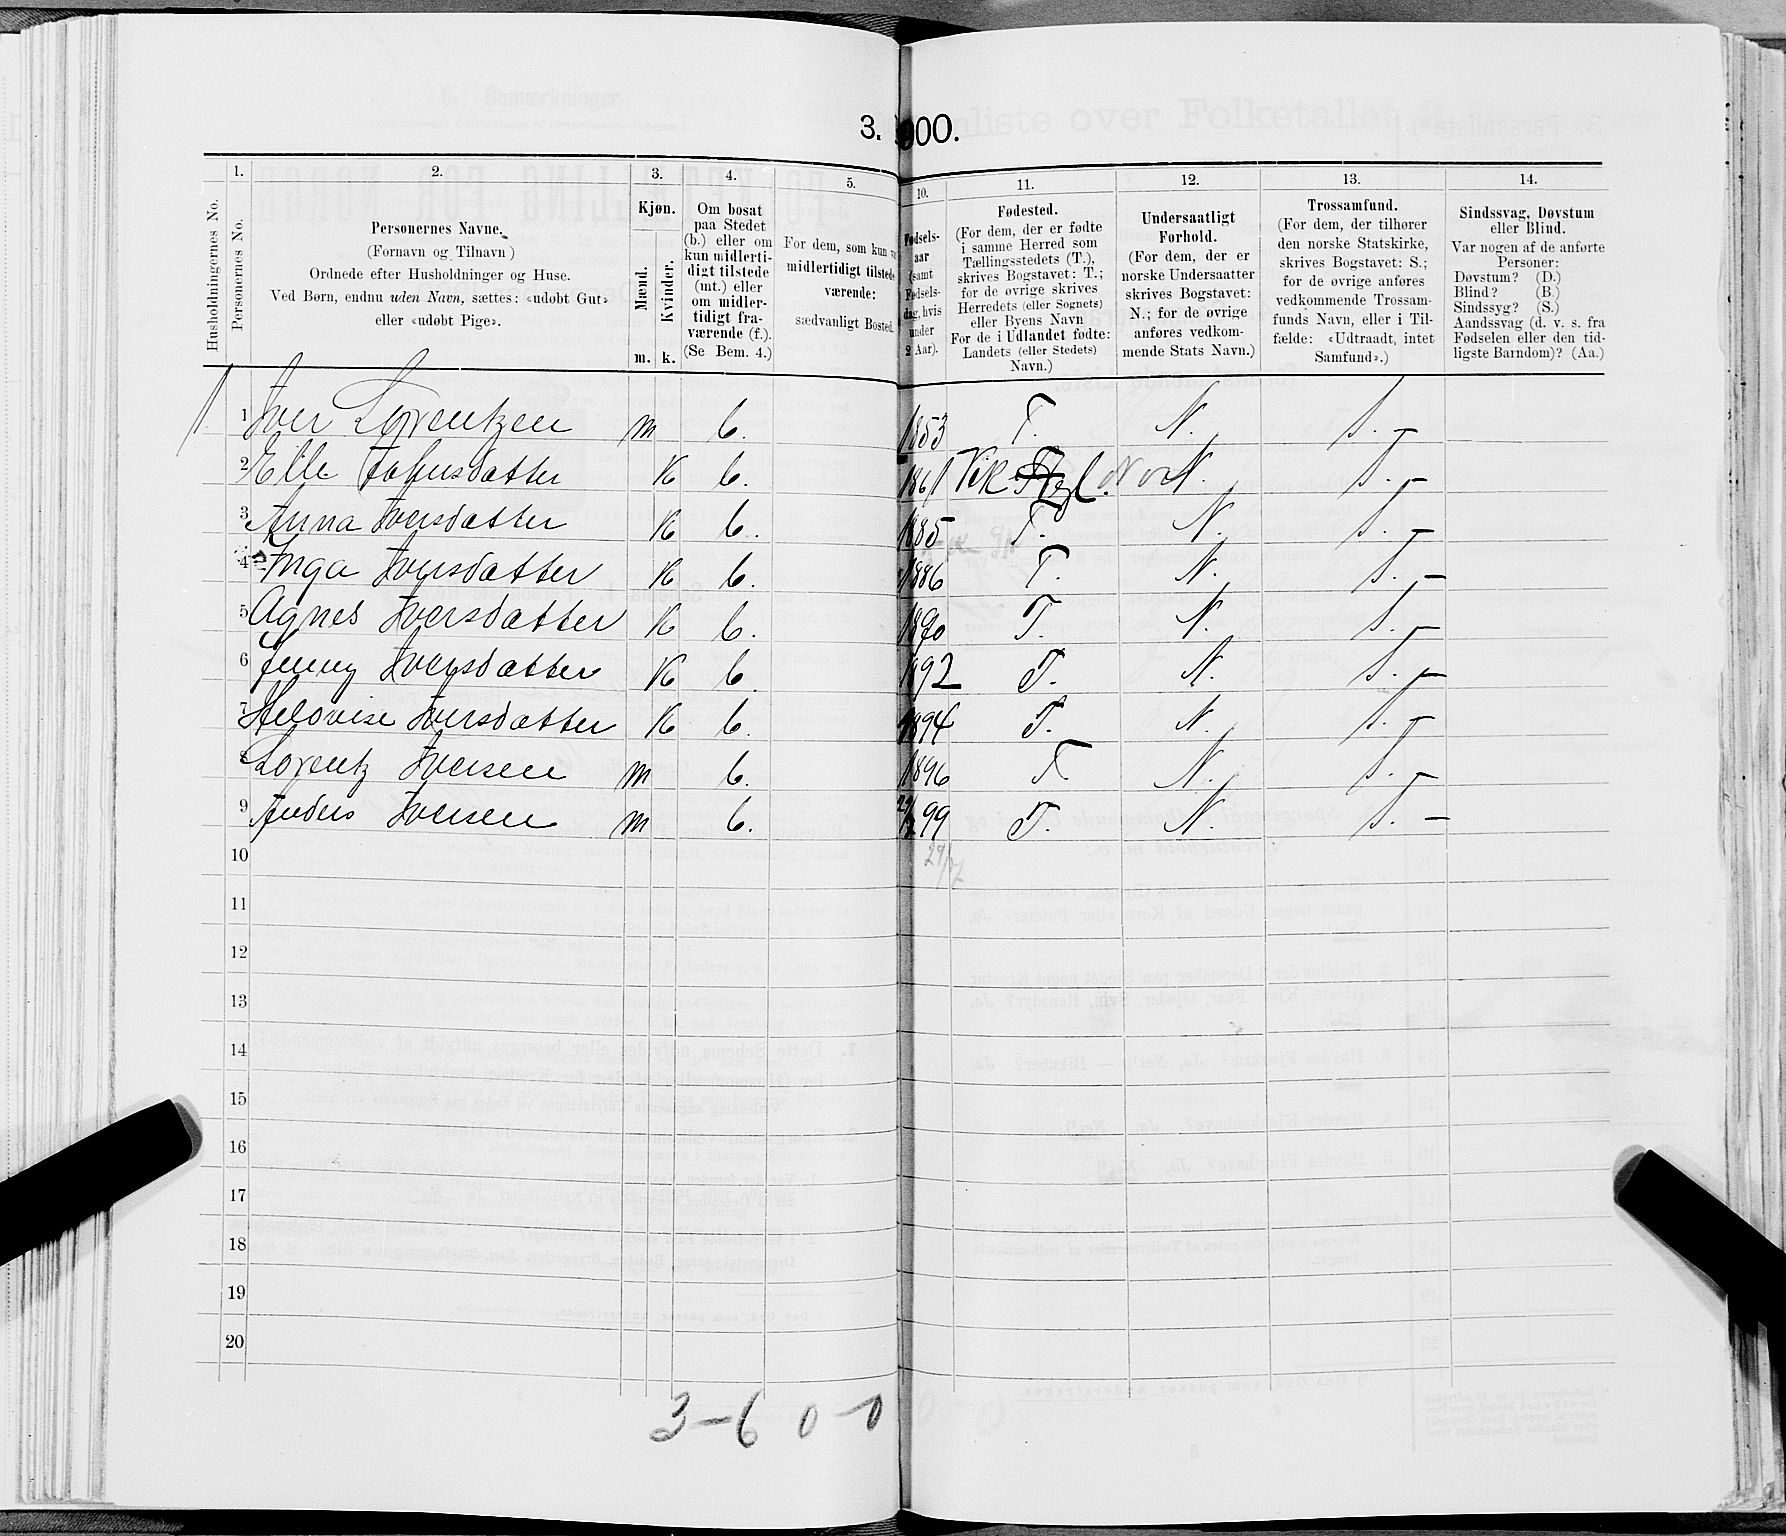 3. 900.
1.
2.
3.
4.
5.
10.
11.
12.
13.
14.
Husholdningernes No.
Personernes No.
Personernes Navne.
(Fornavn og Tilnavn)
Ordnede efter Husholdninger og Huse.
Ved Børn, endnu uden Navn, sættes: «udøbt Gut»
eller «udøbt Pige».
Kjøn.
Mænd.
Kvinder.
m. k.
Om bosat
paa Stedet
(b.) eller om
kun midlerti-
digt tilstede
(mt.) eller
om midler-
tidigt fra-
værende (f.).
(Se Bem. 4.)
For dem, som kun
midlertidigt tilstede-
værende:
sædvanligt Bosted.
Fødsels-
aar
(samt
Fødsels-
dag, hvis
under
2 Aar).
Fødested.
(For dem, der er fødte
i samme Herred som
Tællingsstedets (T.),
skrives Bogstavet: T.;
for de øvrige skrives
Herredets (eller Sognets)
eller Byens Navn
For de i Udlandet fødte:
Landets (eller Stedets)
Navn.)
Undersaatligt
Forhold.
(For dem, der er
norske Undersaatter
skrives Bogstavet:
N.; for de øvrige
anføres vedkom-
mende Stats Navn.)
Trossamfund.
(For dem, der tilhører
den norske Statskirke,
skrives Bogstavet: S.;
for de øvrige anføres
vedkommende Trossam-
funds Navn, eller i Til-
fælde: «Udtraadt, intet
Samfund».)
Sindssvag, Døvstum
eller Blind.
Var nogen af de anførte
Personer:
Døvstum? (D.)
Blind? (B.)
Sindssyg? (S.)
Aandssvag (d. v. s. fra
Fødselen eller den tid-
ligste Barndom)? (Aa.)
1 1 Iver Lorentzen m b. 1853 T. N. S. —
2 Elle Johnsdatter K b. 1861 Vik N. S. —
3 Anna Iversdatter K b. 1885 T. N. S. —
4 Inga Iversdatter K b. 1886 T. N. S. —
5 Agnes Iversdatter K b. 1890 T. N. S. —
6 Jenny Iversdatter K b. 1892 T. N. S. —
7 Helovise Iversdatter K b. 1894 T. N. S. —
8 Lorentz Iversen m b. 1896 T N. S. —
9 Anders Iversen m b. 29/7 99 T. N. S. —
10 29/7
11
12
13
14
15
16
17
18
19
20
3 — 6 0 — 0